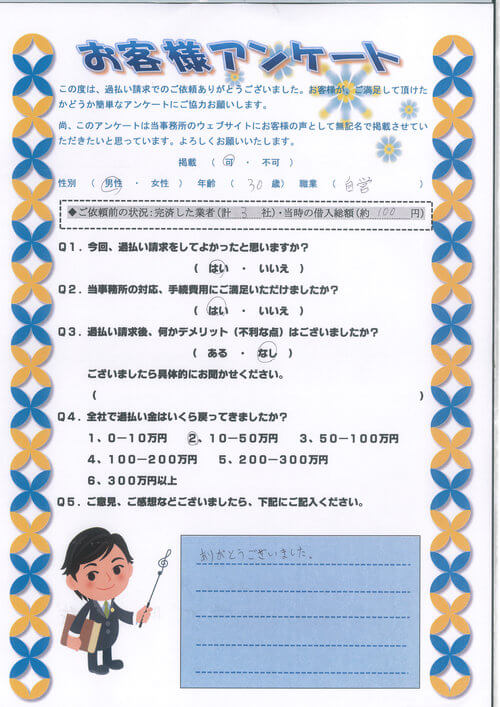 お客様アンケート
この度は、過払い請求でのご依頼ありがとうございました。お客様が、ご満足して頂けた
かどうか簡単なアンケートにご協力お願いします。
尚、このアンケートは当事務所のウェブサイトにお客様の声として無記名で掲載させてい
ただきたいと思っています。よろしくお願いいたします。
掲載 ( 可 ・ 不可 )
性別 ( 男性 ・ 女性 ) 年齢 ( 30 歳) 職業 ( 自営 )
◆ご依頼前の状況:完済した業者(計 3 社)・当時の借入総額(約 100 円)
Q1.今回、過払い請求をしてよかったと思いますか?
( はい ・ いいえ )
Q2.当事務所の対応、手続費用にご満足いただけましたか?
( はい ・ いいえ )
Q3.過払い請求後、何かデメリット(不利な点)はございましたか?
( ある ・ なし )
ございましたら具体的にお聞かせください。
( )
Q4.全社で過払い金はいくら戻ってきましたか?
1、0-10万円 2、10-50万円 3、50-100万円
4、100-200万円 5、200-300万円
6、300万円以上
Q5.ご意見、ご感想などございましたら、下記にご記入ください。
ありがとうございました。